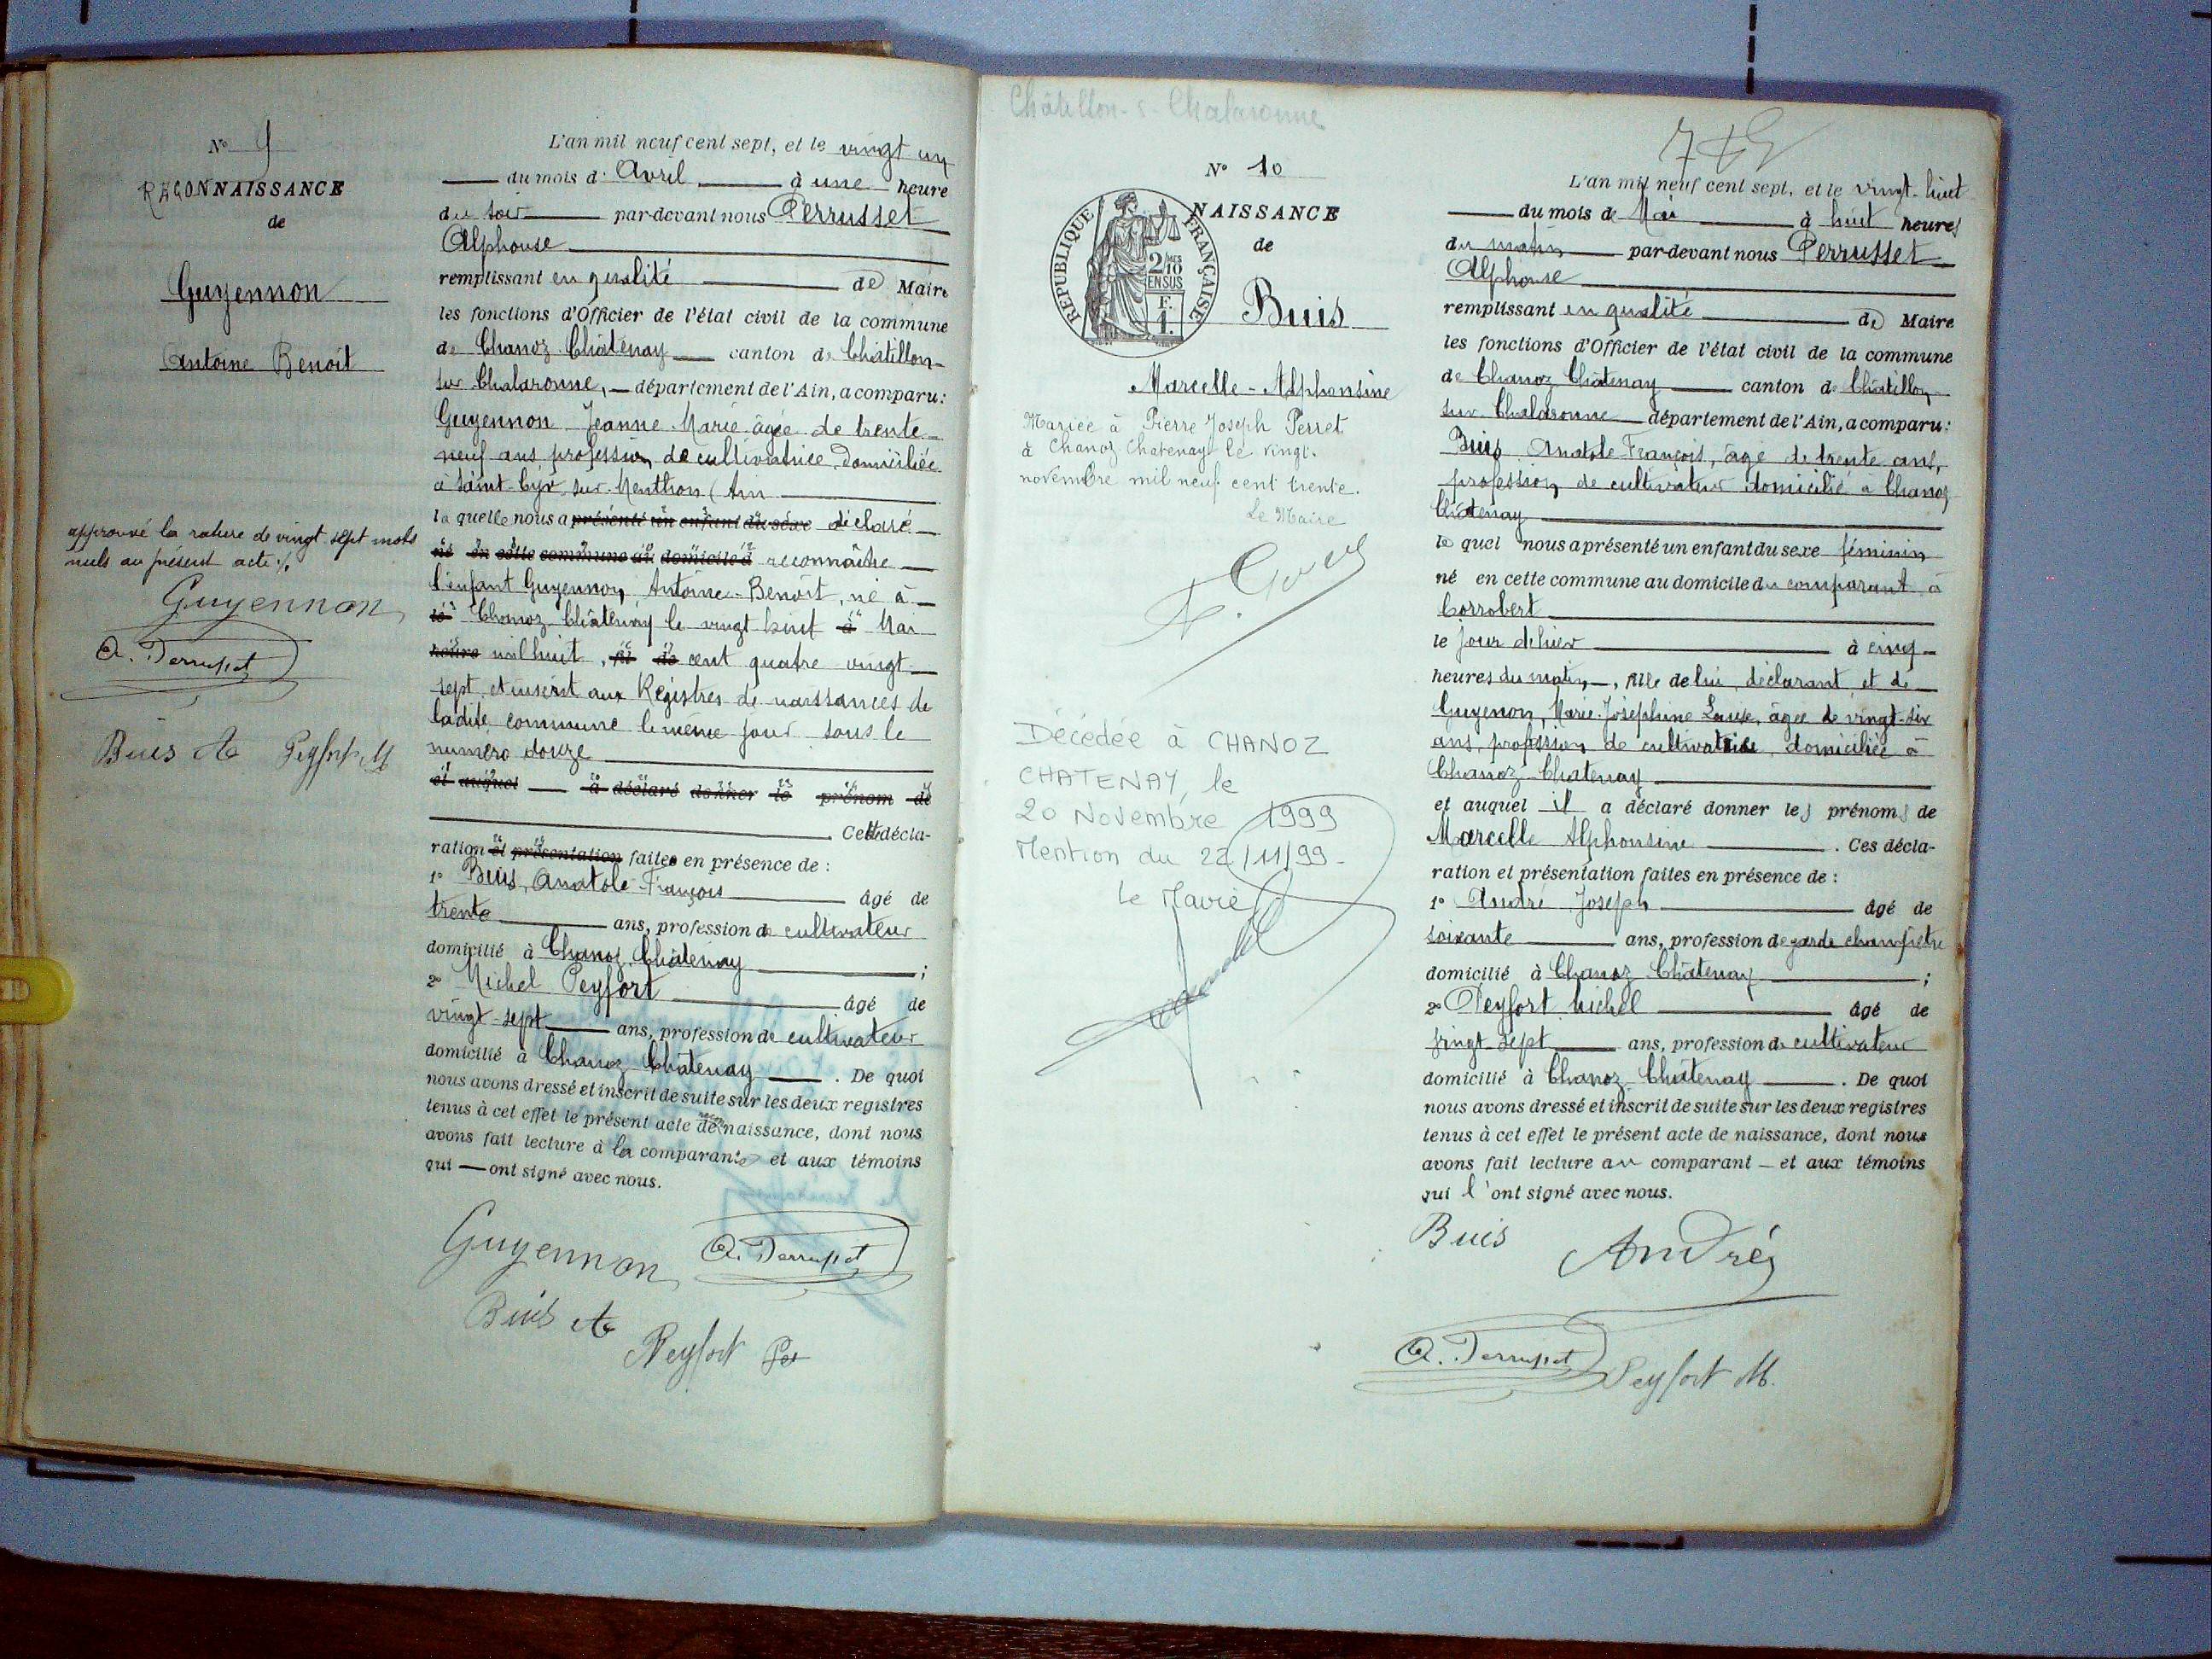 N° 9
RECONNAISSANCE
de
Guyennon
Antoine Benoit
approuvé la rature de vingt-sept mots
nuls au présent acte ./.
Guyennon
A. Perrusset
Buis A Peyfort M
L'an mil neuf cent sept, et le vingt un
du mois d' Avril à une heure
du soir par-devant nous Perrusset
Alphonse
remplissant en qualité de Maire
les fonctions d'Officier de l'état civil de la commune
de Chanoz-Châtenay canton de Châtillon-
sur Chalaronne, département de l'Ain, a comparu:
Guyennon Jeanne-Marie âgée de trente-
neuf ans profession de cultivatrice domiciliée
à Saint-Cyr-sur-Menthon (Ain
la quelle nous a présenté un enfant du sexe déclaré
né en cette commune au domicile d reconnaître
l'enfant Guyennon, Antoine-Benoit, né à
le Chanoz-Châtenay le vingt-huit à Mai
heure mil huit, fil de cent quatre vingt
sept, et inscrit aux Registres de naissances de
ladite commune le même jour sous le
numéro douze
et auquel a déclaré donner le prénom de
Cette décla-
ration et présentation faites en présence de :
1° Buis, Anatole-François âgé de
trente ans, profession de cultivateur
domicilié à Chanoz-Châtenay ;
2° Michel Peyfort âgé de
vingt-sept ans, profession de cultivateur
domicilié à Chanoz-Châtenay . De quoi
nous avons dressé et inscrit de suite sur les deux registres
tenus à cet effet le présent acte de reconnaissance, dont nous
avons fait lecture à la comparante et aux témoins
qui ont signé avec nous.
Guyennon A. Perrusset
Buis A
Peyfort
Châtillon-s-Chalaronne
N° 10
NAISSANCE
de
RÉPUBLIQUE FRANÇAISE
2/10 MES
EN SUS
F.
1.
Buis
Marcelle-Alphonsine
Mariée à Pierre Joseph Perret
à Chanoz Chatenay le vingt-
novembre mil neuf cent trente.
Le Maire
Décédée à CHANOZ
CHATENAY, le
20 Novembre 1999
Mention du 22/11/99-
Le Maire
L'an mil neuf cent sept, et le vingt-huit
du mois de Mai à huit heures
du matin par-devant nous Perrusset
Alphonse
remplissant en qualité de Maire
les fonctions d'Officier de l'état civil de la commune
de Chanoz Châtenay canton de Châtillon
sur Chalaronne département de l'Ain, a comparu:
Buis Anatole-François, âgé de trente ans,
profession de cultivateur domicilié à Chanoz
Châtenay
le quel nous a présenté un enfant du sexe féminin
né en cette commune au domicile du comparant à
Corrobert
le jour d'hier à cinq
heures du matin, fille de lui, déclarant et de
Guyenon, Marie-Joséphine Louise, âgée de vingt-six
ans, profession de cultivatrice, domiciliée à
Chanoz-Chatenay
et auquel il a déclaré donner les prénoms de
Marcelle Alphonsine . Ces décla-
ration et présentation faites en présence de :
1° André Joseph âgé de
soixante ans, profession de garde champêtre
domicilié à Chanoz Châtenay ;
2° Peyfort Michel âgé de
vingt-sept ans, profession de cultivateur
domicilié à Chanoz-Châtenay . De quoi
nous avons dressé et inscrit de suite sur les deux registres
tenus à cet effet le présent acte de naissance, dont nous
avons fait lecture au comparant et aux témoins
qui l'ont signé avec nous.
Buis André
A. Perrusset Peyfort M.